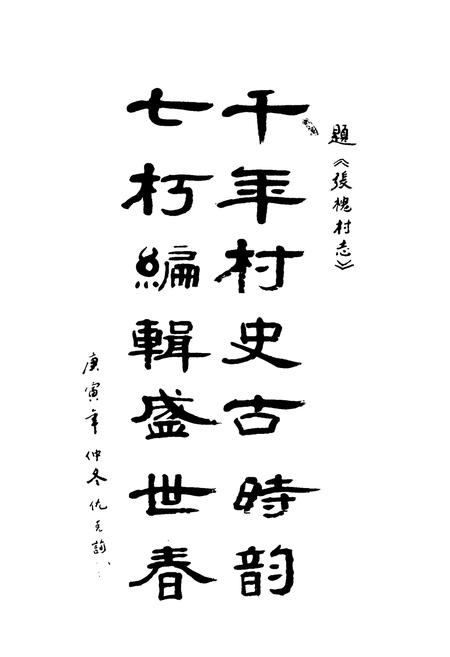 題《張槐村志》
千年村史古時韵
七朽編輯盛世春
庚寅年仲冬仇志詢